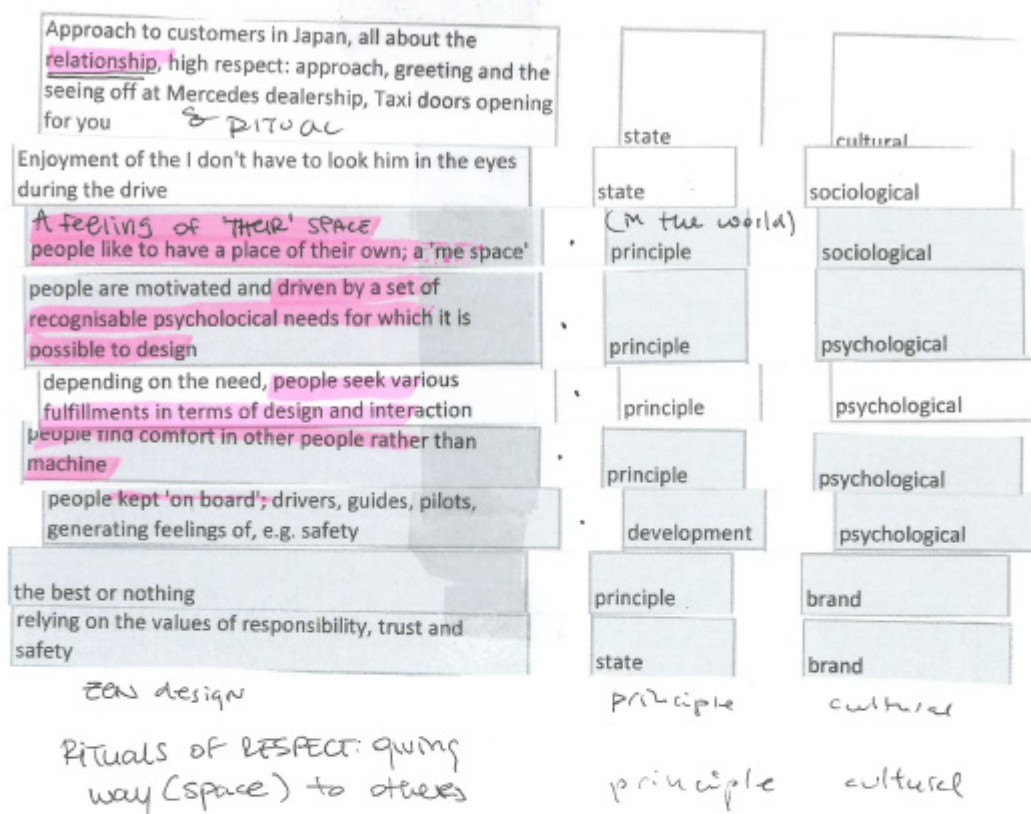 Approach to customers in Japan, all about the
relationship, high respect: approach, greeting and the
seeing off at Mercedes dealership, Taxi doors opening
for you & RITUAL
state
cultural
Enjoyment of the I don't have to look him in the eyes
during the drive
state
sociological
A feeling of 'THEIR' SPACE
(in the world)
people like to have a place of their own; a 'me space'
principle
sociological
people are motivated and driven by a set of
recognisable psycholocical needs for which it is
possible to design
principle
psychological
depending on the need, people seek various
fulfillments in terms of design and interaction
principle
psychological
people find comfort in other people rather than
machine
principle
psychological
people kept 'on board'; drivers, guides, pilots,
generating feelings of, e.g. safety
development
psychological
the best or nothing
principle
brand
relying on the values of responsibility, trust and
safety
state
brand
ZEN design
principle
cultural
RITUALS OF RESPECT: giving
way (space) to others
principle
cultural